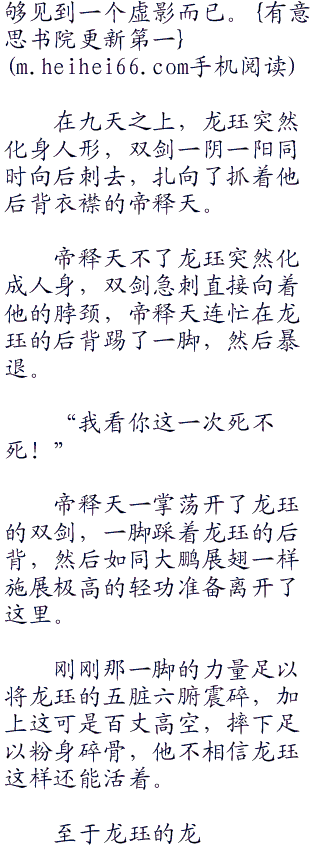 够见到一个虚影而已。{有意
思书院更新第一}
(m.heihei66.com手机阅读)
在九天之上，龙珏突然
化身人形，双剑一阴一阳同
时向后刺去，扎向了抓着他
后背衣襟的帝释天。
帝释天不了龙珏突然化
成人身，双剑急刺直接向着
他的脖颈，帝释天连忙在龙
珏的后背踢了一脚，然后暴
退。
“我看你这一次死不
死！”
帝释天一掌荡开了龙珏
的双剑，一脚踩着龙珏的后
背，然后如同大鹏展翅一样
施展极高的轻功准备离开了
这里。
刚刚那一脚的力量足以
将龙珏的五脏六腑震碎，加
上这可是百丈高空，摔下足
以粉身碎骨，他不相信龙珏
这样还能活着。
至于龙珏的龙